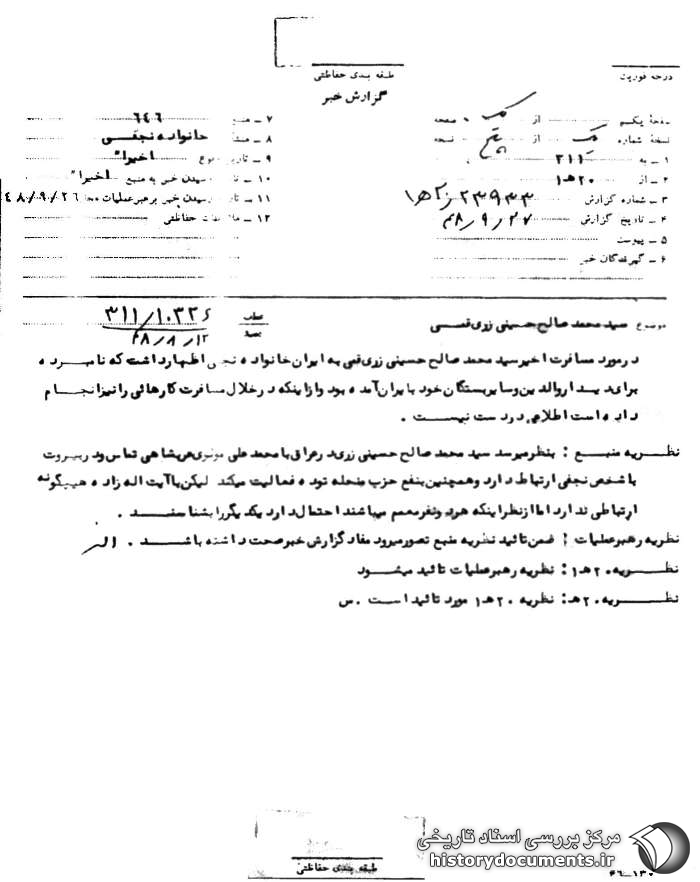 طبقه بندی حفاظتی
درجه فوریت
گزارش خبر
صفحهٔ یکم از یک صفحه
نسخهٔ شماره یک از پنج نسخه
۱ ـ به ۳۱۱
۲ ـ از ۲۰ هـ ۱
۳ ـ شماره گزارش ۲۳۹۳۳
۴ ـ تاریخ گزارش ۴۸/۹/۲۷
۵ ـ پیوست
۶ ـ گیرندگان خبر
۷ ـ منبع ۶۴۶
۸ ـ خانواده نجفی
۹ ـ تاریخ وقوع اخیراً
۱۰ ـ رسیدن خبر به منبع اخیراً
۱۱ ـ رسیدن خبر برهبر عملیات ۴۸/۹/۲۶
۱۲ ـ حفاظتی
موضوع سید محمد صالح حسینی زری قمی
۳۱۱/۱۰۳۲۶
در مورد مسافرت اخیر سید محمد صالح حسینی زری قمی به ایران خانواده نجفی اظهار داشت که نامبرده
برای دیدار والدین و سایر بستگان خود بایران آمده بود و از اینکه در خلال مسافرت کارهائی را نیز انجام
داده است اطلاعی در دست نیست .
نظریه منبع : بنظر میرسد سید محمد صالح حسینی زری در عراق با محمد علی موسوی تماس و در بیروت
با شخص نجفی ارتباط دارد و همچنین بنفع حزب منحله توده فعالیت میکند لیکن با آیت اله زاده هیچگونه
ارتباطی ندارد اما از نظر اینکه هر دو نفر معمم میباشند احتمال دارد یکدیگر را بشناسند .
نظریه رهبر عملیات : ضمن تائید نظریه منبع تصور میرود مفاد گزارش خبر صحت داشته باشد .
نظریه ۲۰ هـ ۱ : نظریه رهبر عملیات تائید میشود
نظریه ۲۰ هـ : نظریه ۲۰ هـ ۱ مورد تائید است . س
طبقه بندی حفاظتی
مرکز بررسی اسناد تاریخی
historydocuments.ir